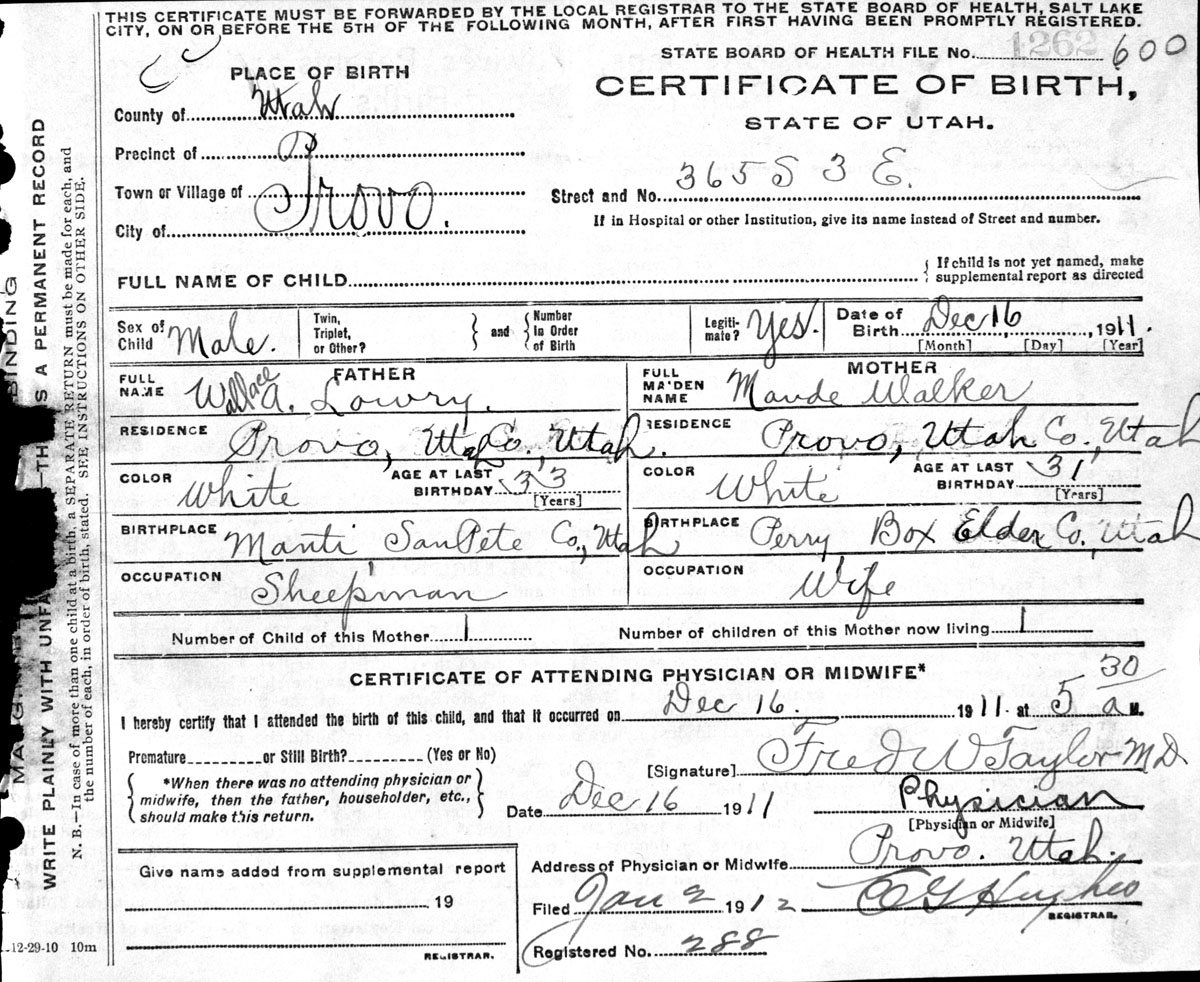 THIS CERTIFICATE MUST BE FORWARDED BY THE LOCAL REGISTRAR TO THE STATE BOARD OF HEALTH, SALT LAKE
CITY, ON OR BEFORE THE 5TH OF THE FOLLOWING MONTH, AFTER FIRST HAVING BEEN PROMPTLY REGISTERED.
STATE BOARD OF HEALTH FILE No. 1262 600
PLACE OF BIRTH
CERTIFICATE OF BIRTH,
STATE OF UTAH.
County of Utah
Precinct of
Town or Village of Provo.
City of
Street and No. 365 S 3 E.
If in Hospital or other Institution, give its name instead of Street and number.
FULL NAME OF CHILD
{ If child is not yet named, make
supplemental report as directed
Sex of Child Male.
Twin, Triplet, or Other? } and { Number In Order of Birth
Legiti-mate? Yes.
Date of Birth Dec 16, 1911.
[Month] [Day] [Year]
FATHER
FULL NAME Wallace A. Lowry.
MOTHER
FULL MAIDEN NAME Maude Walker
RESIDENCE Provo, Utah Co., Utah.
RESIDENCE Provo, Utah Co., Utah
COLOR White
AGE AT LAST BIRTHDAY 33
[Years]
COLOR White
AGE AT LAST BIRTHDAY 31
[Years]
BIRTHPLACE Manti SanPete Co., Utah
BIRTHPLACE Perry Box Elder Co., Utah
OCCUPATION Sheepman
OCCUPATION Wife
Number of Child of this Mother 1
Number of children of this Mother now living 1
CERTIFICATE OF ATTENDING PHYSICIAN OR MIDWIFE*
I hereby certify that I attended the birth of this child, and that it occurred on Dec 16. 1911 at 5 30 a M.
Premature or Still Birth? (Yes or No)
{ *When there was no attending physician or
midwife, then the father, householder, etc.,
should make this return. }
[Signature] Fred W Taylor M.D.
Date Dec 16 1911
Physician
[Physician or Midwife]
Address of Physician or Midwife Provo. Utah.
Give name added from supplemental report
19
REGISTRAR.
Filed Jan 2 1912 Hughes
REGISTRAR.
Registered No. 288
12-29-10 10m
BINDING
WRITE PLAINLY WITH UNFA A PERMANENT RECORD
N. B.—In case of more than one child at a birth, a SEPARATE RETURN must be made for each, and
the number of each, in order of birth, stated. SEE INSTRUCTIONS ON OTHER SIDE.